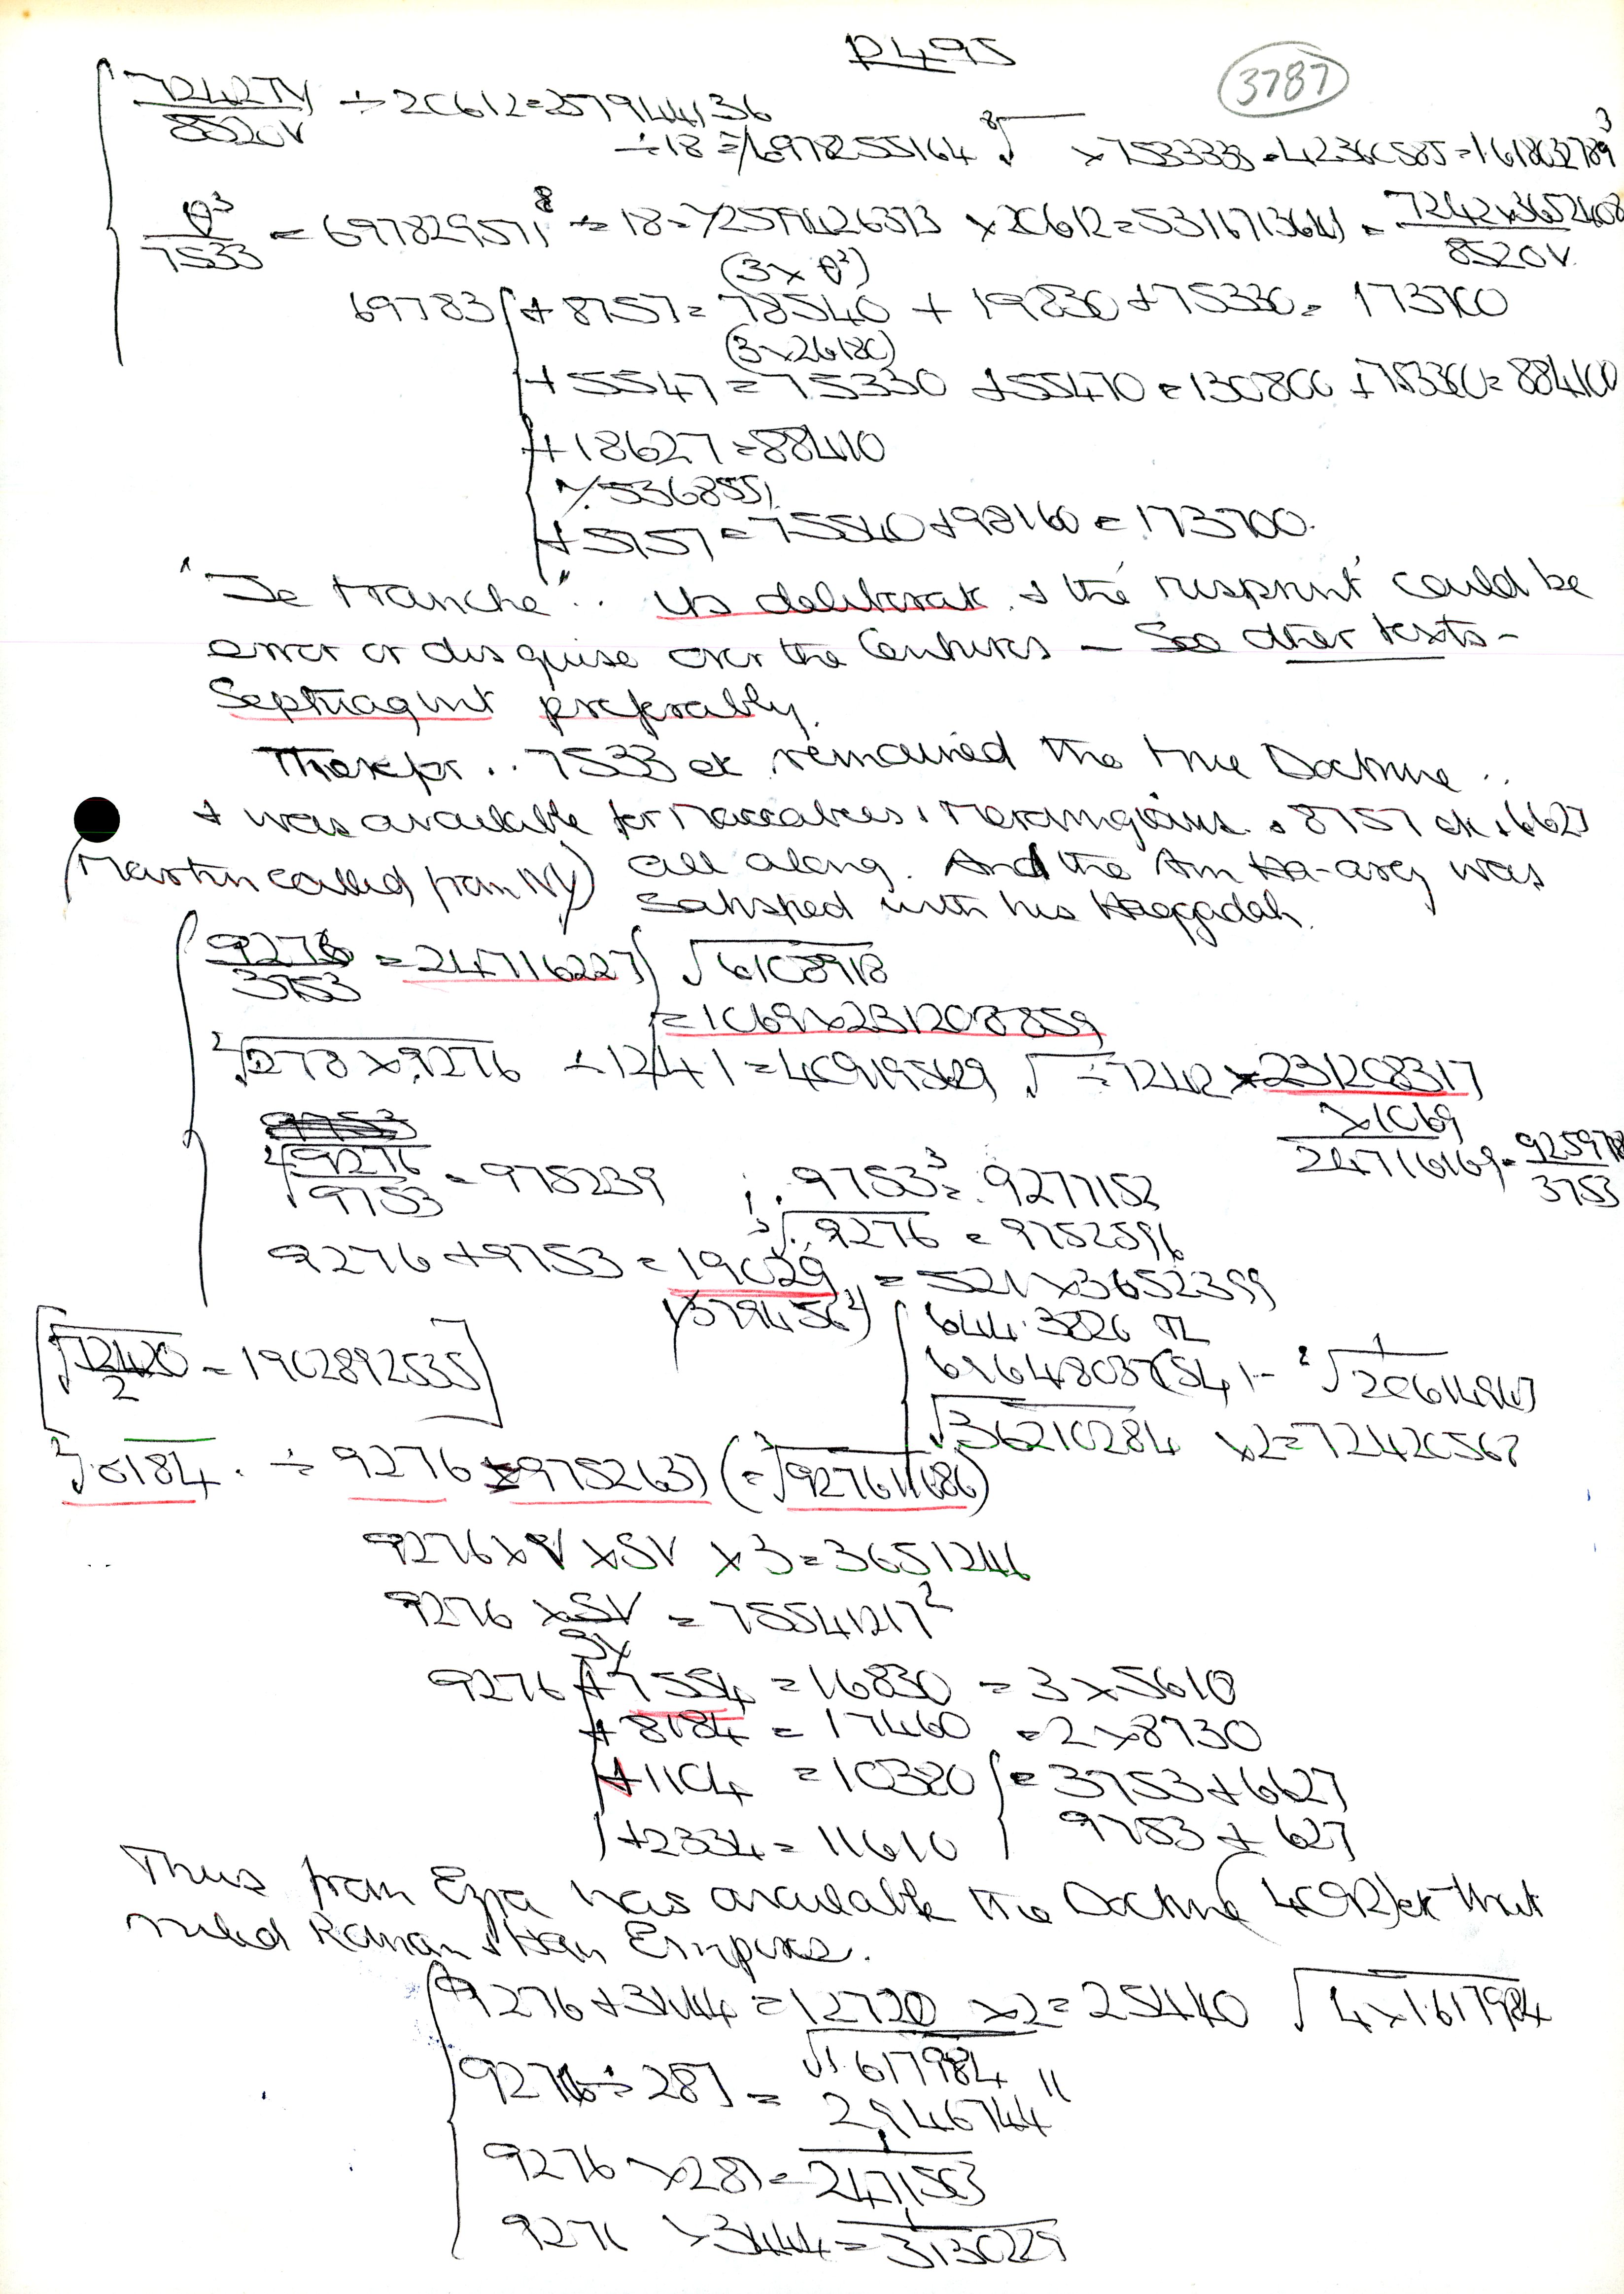 P495
3787
÷ 2C612 = 257944136
÷ 18 = 1/697255164 ⁸√ × 7533333 = 4236C585 = 1.618032789³
θ³/7533 = 697829571⁸ ÷ 18 = 1/2579426373 × 2C612 = 5316713641 = 7242 × 3652408/8520V
(3 × θ²)
69783 + 8757 = 78540 + 19830 + 75330 = 173700
(3 × 2618C)
+ 5547 = 75330 + 55470 = 130800 + 753300 = 884100
+ 18627 = 88410
1/.5368551
+ 5757 = 75540 + 98160 = 173700.
"Je tranche".. its deliberate & the 'misprint' could be
error or disguise over the Centuries – See other texts –
Septuagint preferably.
Therefor .. 7533 et remained the true Doctrine ..
& was available for Maccabees, Merovingians & 8757 et & 6627
(Martin called from NY) all along. And the Am Ha-arez was
satisfied with his Haggadah.
9276/3753 = 24716227 √6108918
= 1C69 × 231208859
²√278 × 9276 ÷ 1241 = 409195429 √ ÷ 7242 × 231208317
× 1C69
24716169 = 925978/3753
⁴√9276/9753 = 975239 ∴ .9753³ = .9277152
³√.9276 = 9752596
9276 + 9753 = 19029 = 521 × 3652399
(13794562²) 644.3826 TL
[√72420/2 = 1902892535]
√36210284 × 2 = 72420567
²√.8184 . ÷ 9276 × 9752637 (= ³√927611686)
9276 × 9V × SV × 3 = 3651246
9276 × SV/3V = 75541217²
9276 + 7554 = 16830 = 3 × 5610
+ 8184 = 17460 = 2 × 8730
+ 1104 = 10380 = 3753 + 6627
+ 2334 = 11610 9753 + 627
Thus from Ezra was available the Doctrine (4092) et that
ruled Roman & Han Empires.
9276 + 3444 = 12720 × 2 = 25440 √4 × 1.617984
9276 ÷ 287 = √1.617984
2,946744"
9276 × 287 = 1/2471503
9276 × 3444 = 1/3130229